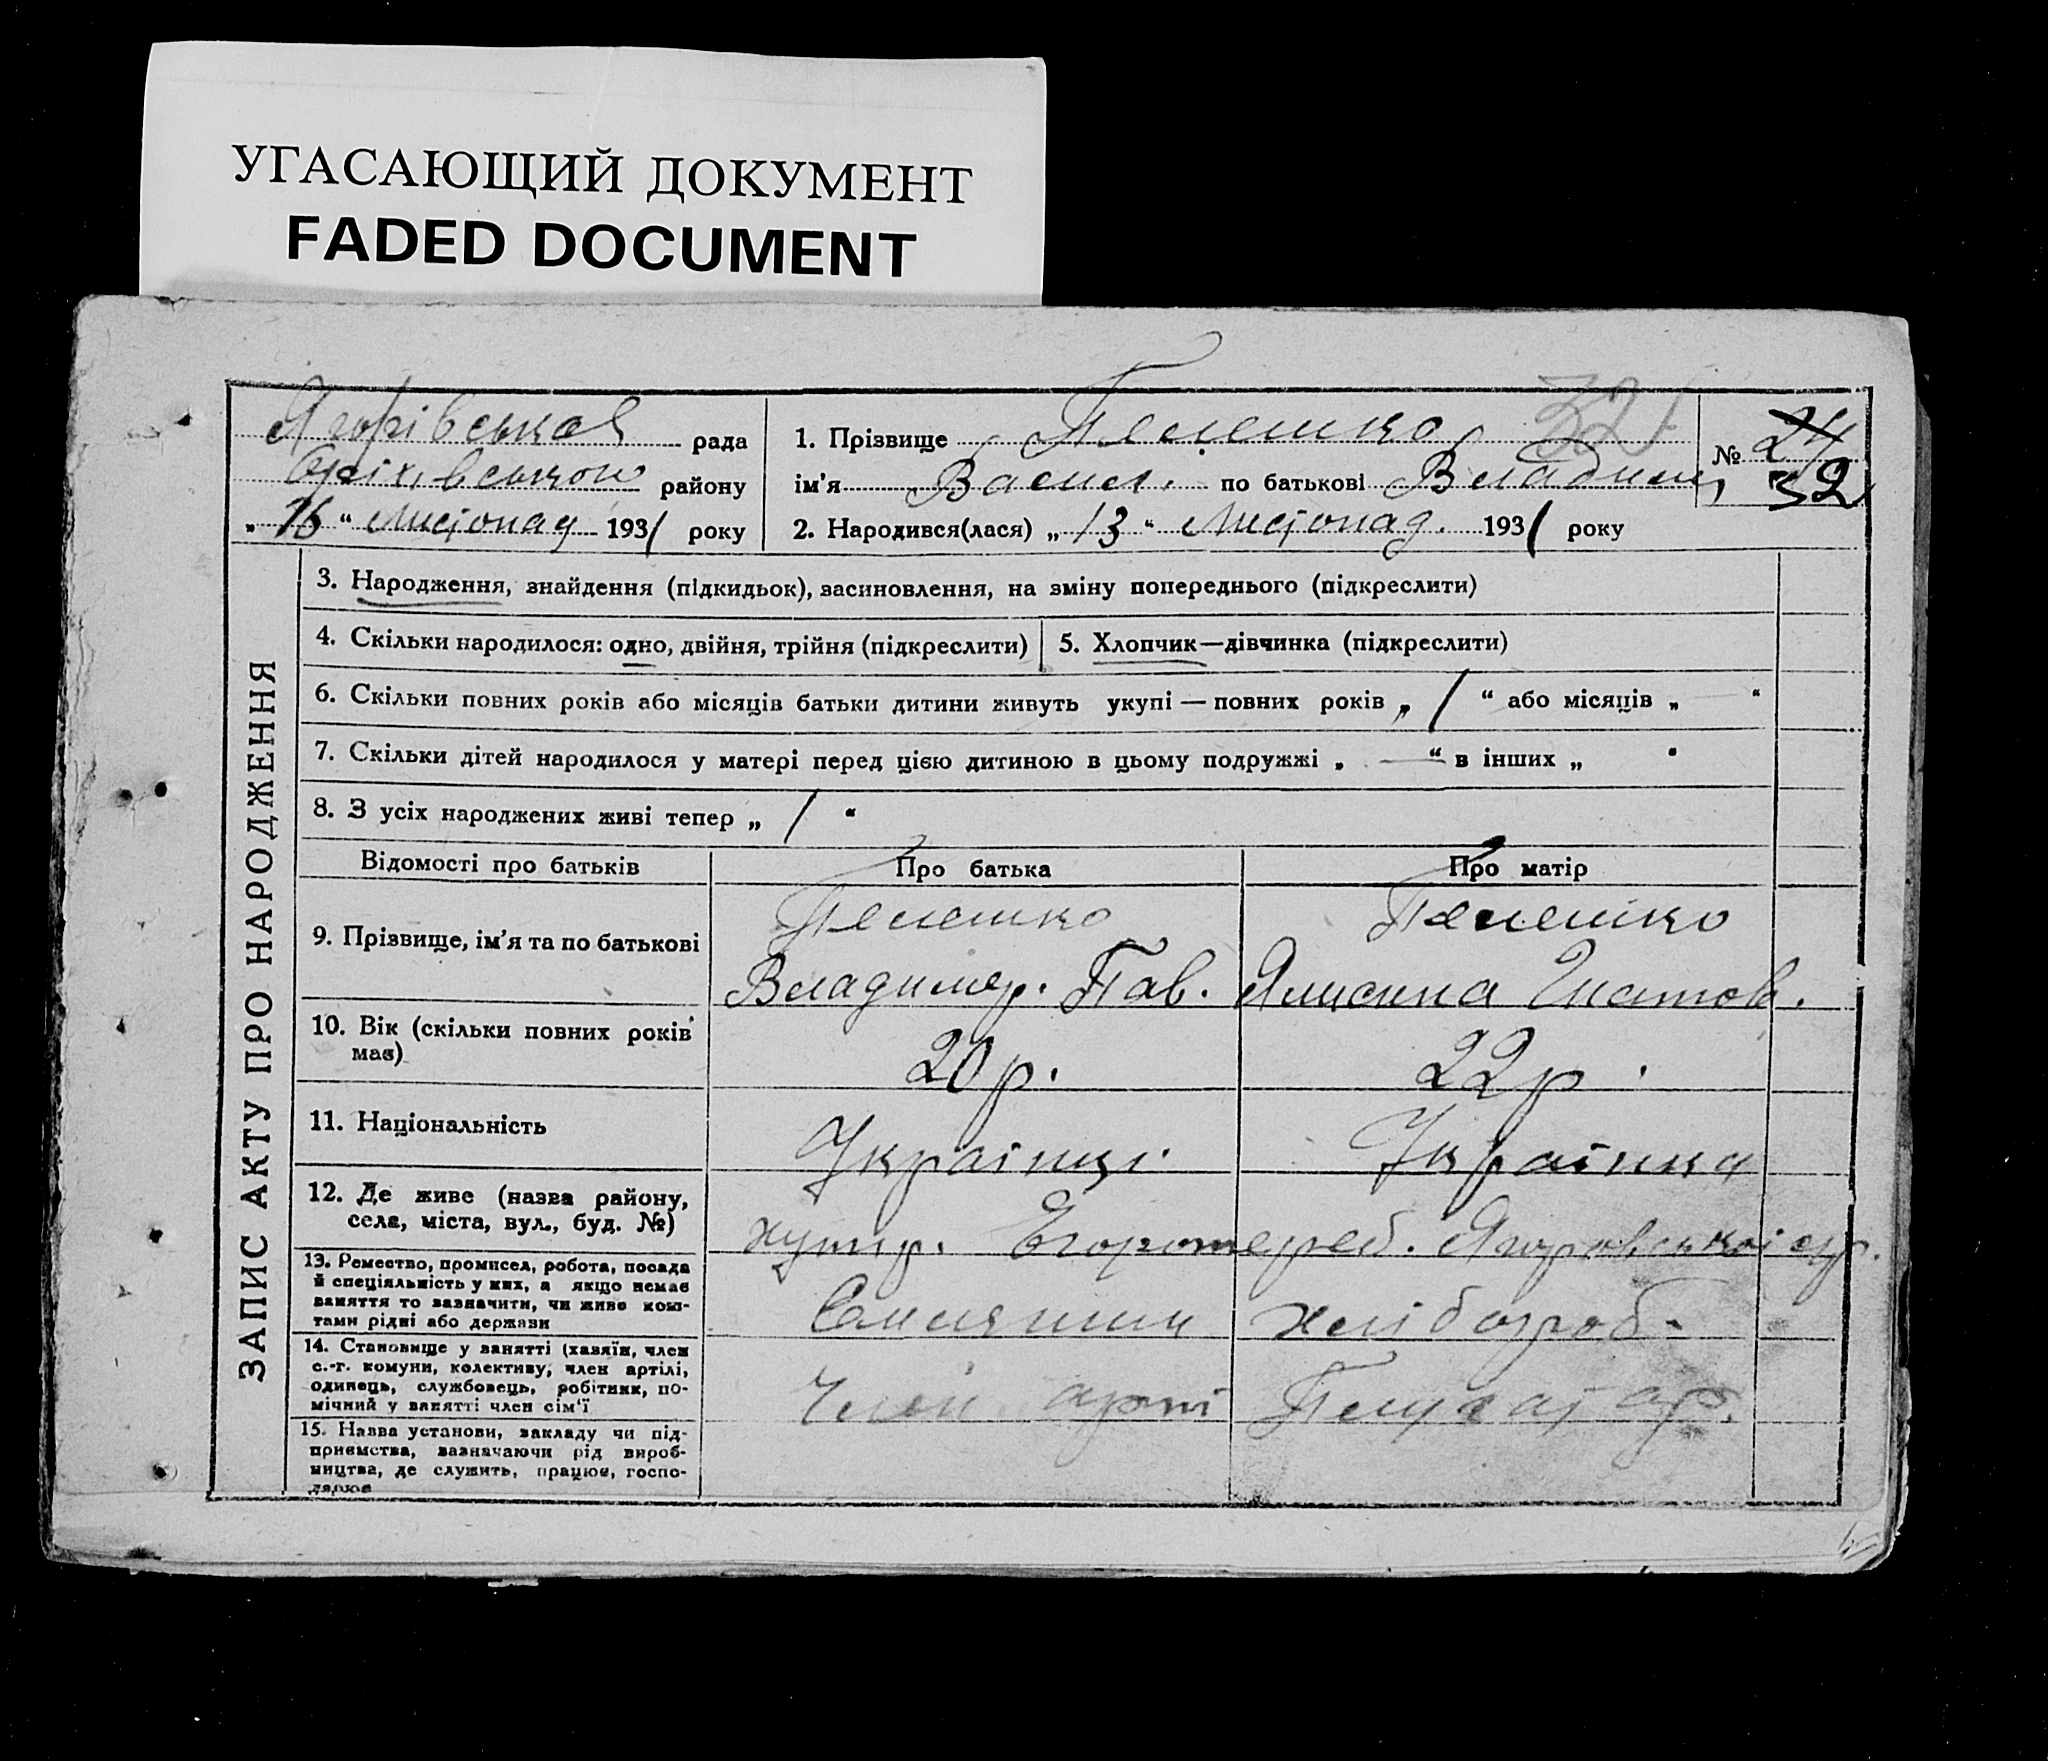 УГАСАЮЩИЙ ДОКУМЕНТ
FADED DOCUMENT
321
Ягорівська рада
району
„16“ Листопад 1931 року
1. Прізвище Пелешко
ім'я Васил. по батькові Владимир
№ 24
32
2. Народився(лася) „13“ Листопад. 1931 року
ЗАПИС АКТУ ПРО НАРОДЖЕННЯ
3. Народження, знайдення (підкидьок), засиновлення, на зміну попереднього (підкреслити)
4. Скільки народилося: одно, двійня, трійня (підкреслити)
5. Хлопчик—дівчинка (підкреслити)
6. Скільки повних років або місяців батьки дитини живуть укупі — повних років „ 1 “ або місяців „ — “
7. Скільки дітей народилося у матері перед цією дитиною в цьому подружжі „ — “ в інших „ “
8. З усіх народжених живі тепер „ 1 “
Відомості про батьків
Про батька
Про матір
9. Прізвище, ім'я та по батькові
Пелешко
Владимер. Пав.
Пелешко
Игнатов.
10. Вік (скільки повних років
має)
20 р.
22 р.
11. Національність
Українці.
Українка
12. Де живе (назва району,
села, міста, вул., буд. №)
хутир. Ягоровської ср.
13. Ремество, промисел, робота, посада
й спеціяльність у них, а якщо немає
заняття то зазначити, чи живе кош-
тами рідні або держави
Селянин
хлібороб.
14. Становище у занятті (хазяїн, член
с.-г. комуни, колективу, член артілі,
одинець, службовець, робітник, по-
мічний у занятті член сім'ї
Член арті
15. Назва установи, закладу чи під-
приємства, зазначаючи рід вироб-
ництва, де служить, працює, госпо-
дарює